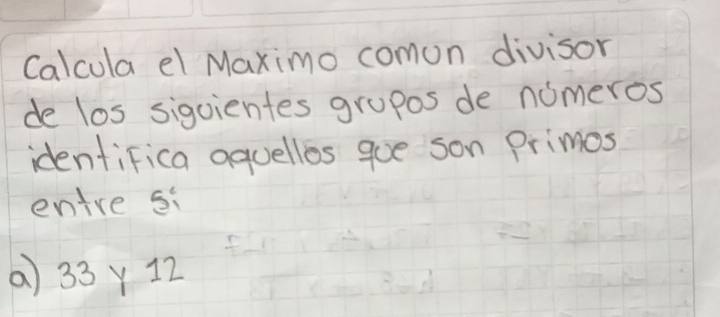 Calcula el Maximo comun divisor
de los siguientes grupos de números
identifica aquellos que son primos
entre sí
a) 33 y 12